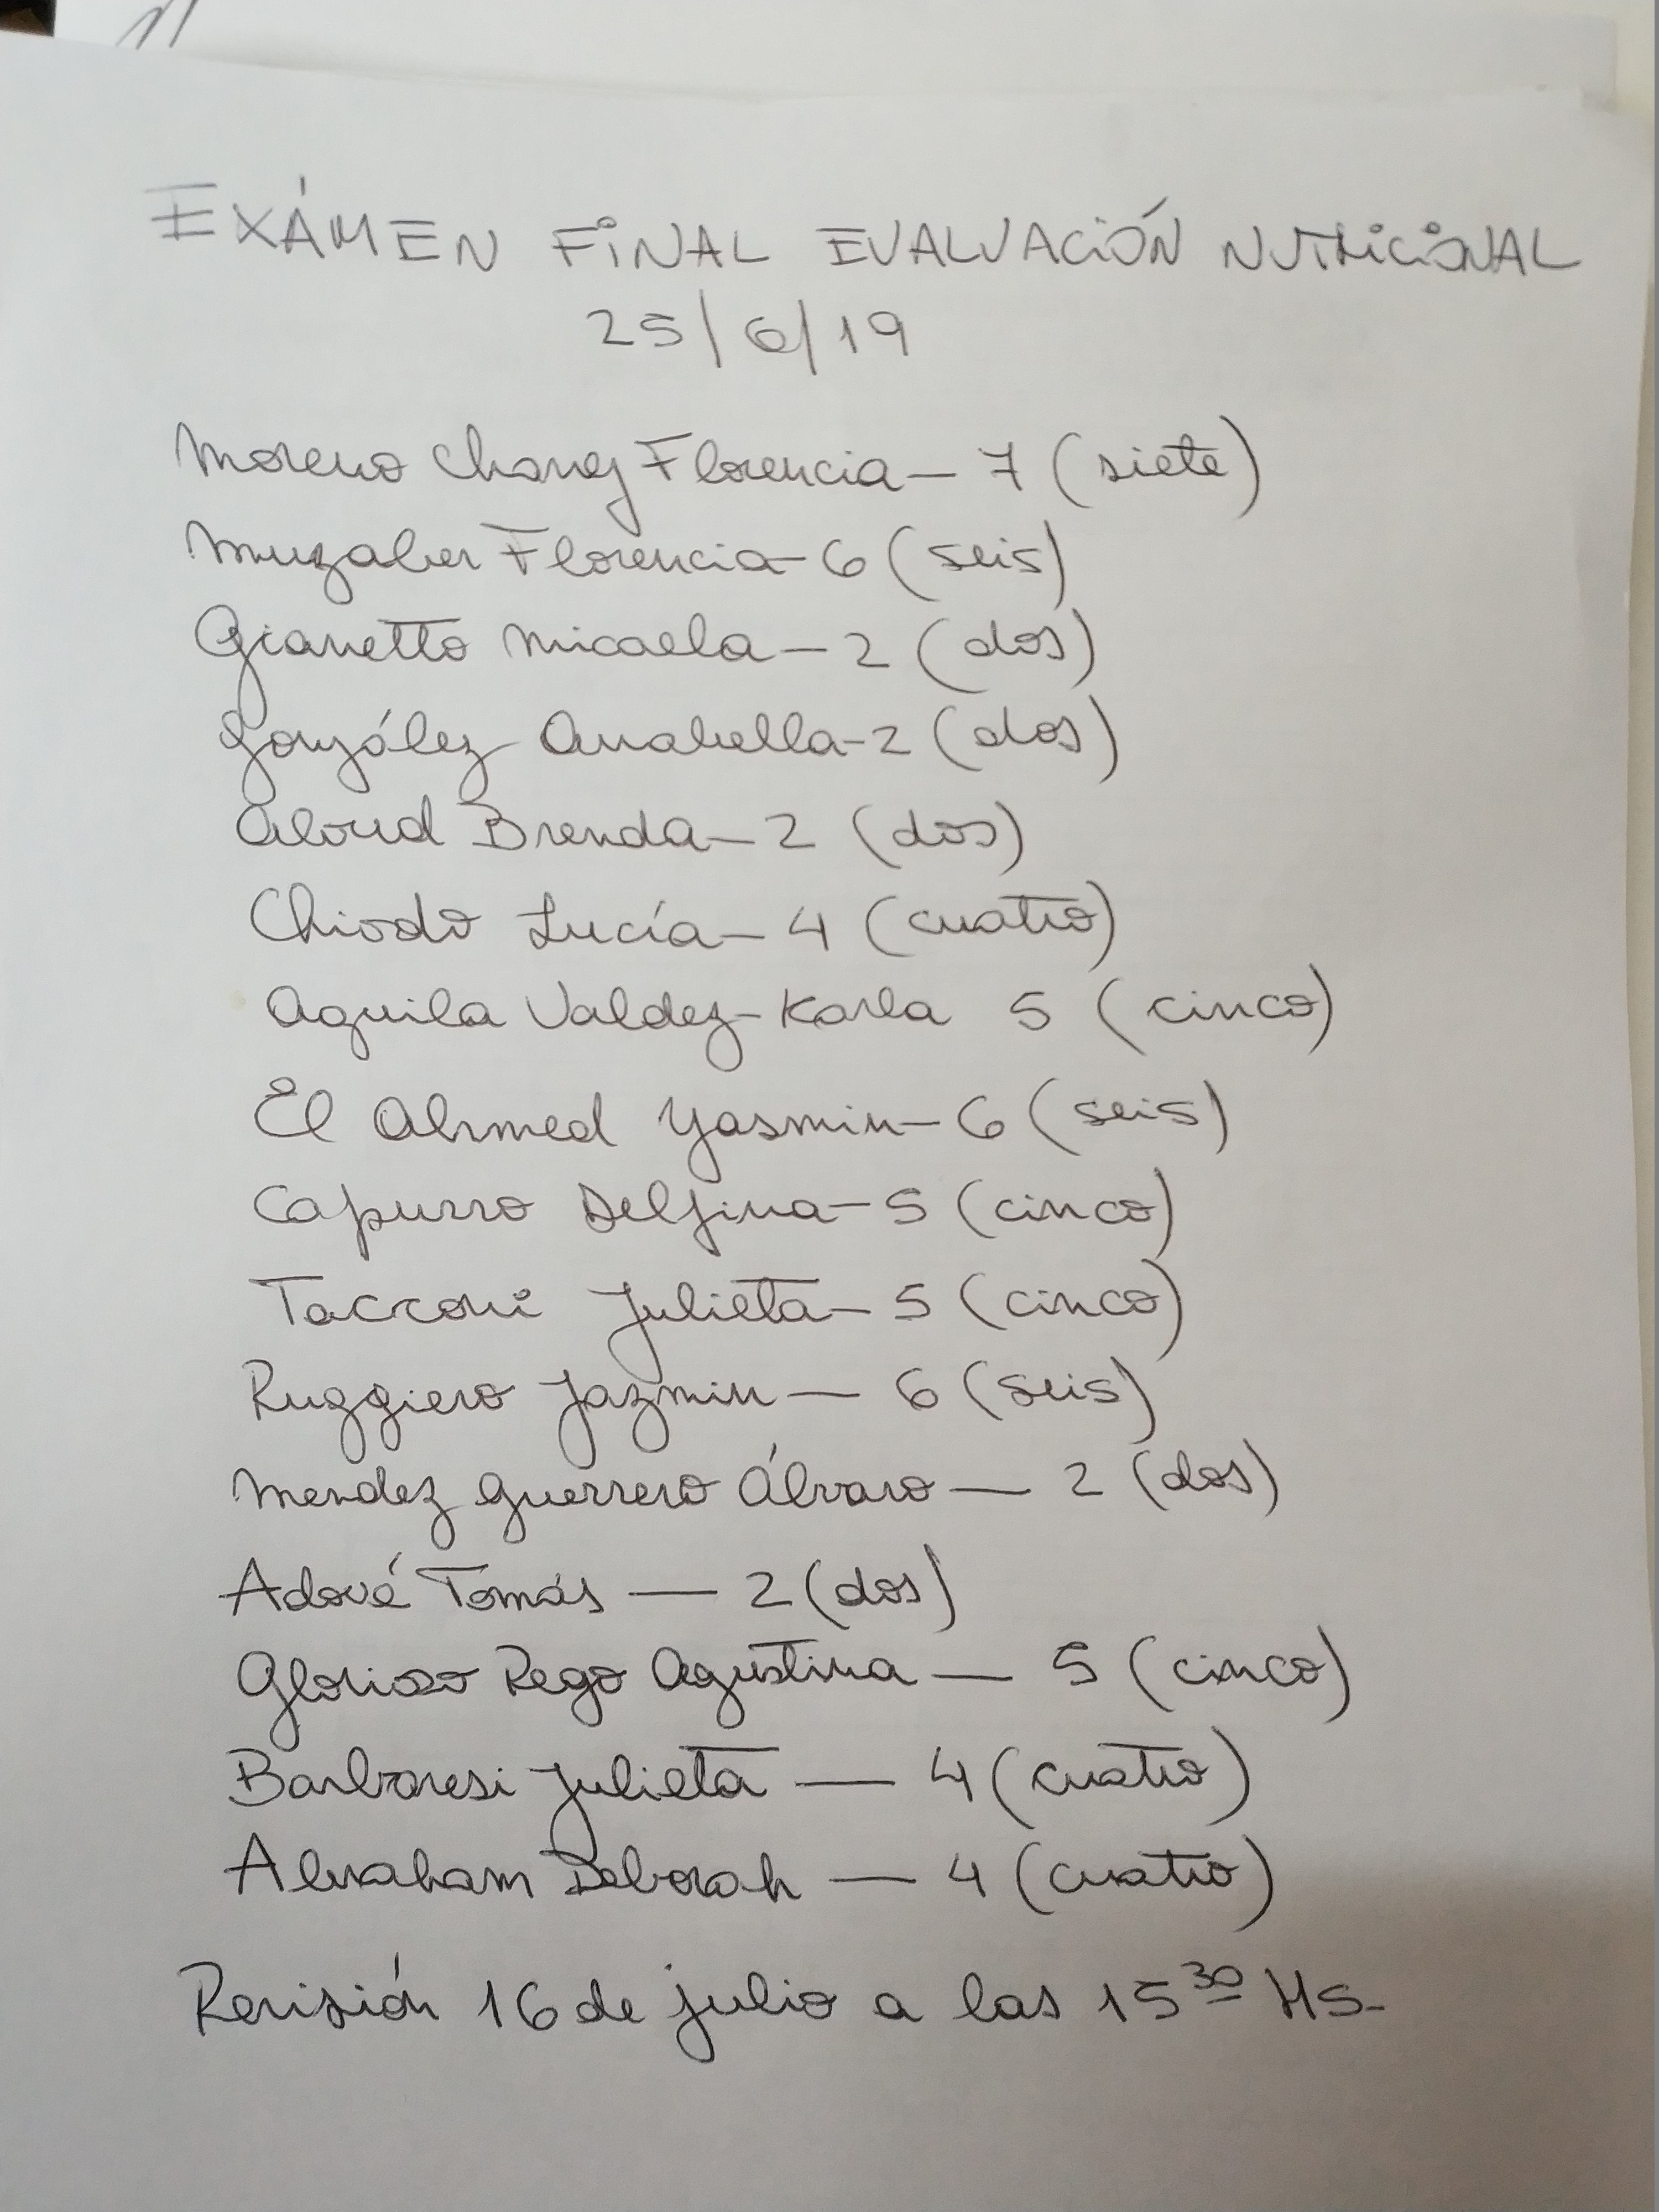 EXÁMEN FINAL EVALUACIÓN NUTRICIONAL
25/6/19
Moreno Chang Florencia - 7 (siete)
Muzaber Florencia - 6 (seis)
Gianetto Micaela - 2 (dos)
González Anabella - 2 (dos)
Brenda - 2 (dos)
Chiodo Lucía - 4 (cuatro)
Aguila Valdez - Karla 5 (cinco)
El Ahmed Yasmin - 6 (seis)
Capurro Delfina - 5 (cinco)
Tacconi Julieta - 5 (cinco)
Ruggiero Jazmin - 6 (seis)
Mendez Guerrero Álvaro - 2 (dos)
Adové Tomás - 2 (dos)
Glorioso Rego Agustina - 5 (cinco)
Barbaresi Julieta - 4 (cuatro)
Abraham Deborah - 4 (cuatro)
Revisión 16 de julio a las 15 30 Hs.